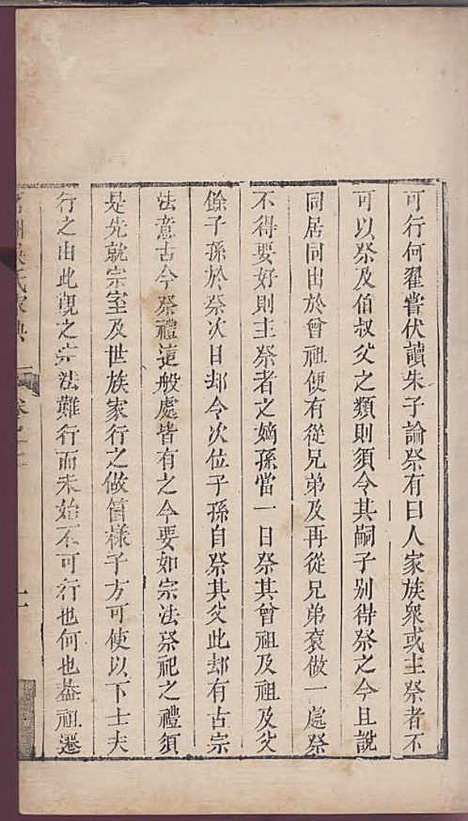 可行何翟嘗伏讀朱子論祭有曰人家族衆或主祭者不
可以祭及伯叔父之類則須令其嗣子別得祭之今且說
同居同出於曾祖便有從兄弟及再從兄弟衮做一處祭
不得要好則主祭者之嫡孫當一日祭其曾祖及祖及父
餘子孫於祭次日却令次位子孫自祭其父此却有古宗
法意古今祭禮這般處皆有之今要如宗法祭祀之禮須
是先就宗室及世族家行之做箇樣子方可使以下士夫
行之由此觀之宗法難行而未始不可行也何也蓋祖遷
氏家典